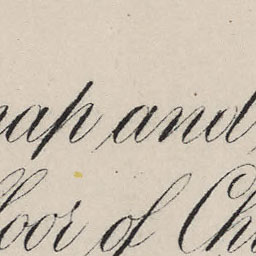 map and
floor of Ch